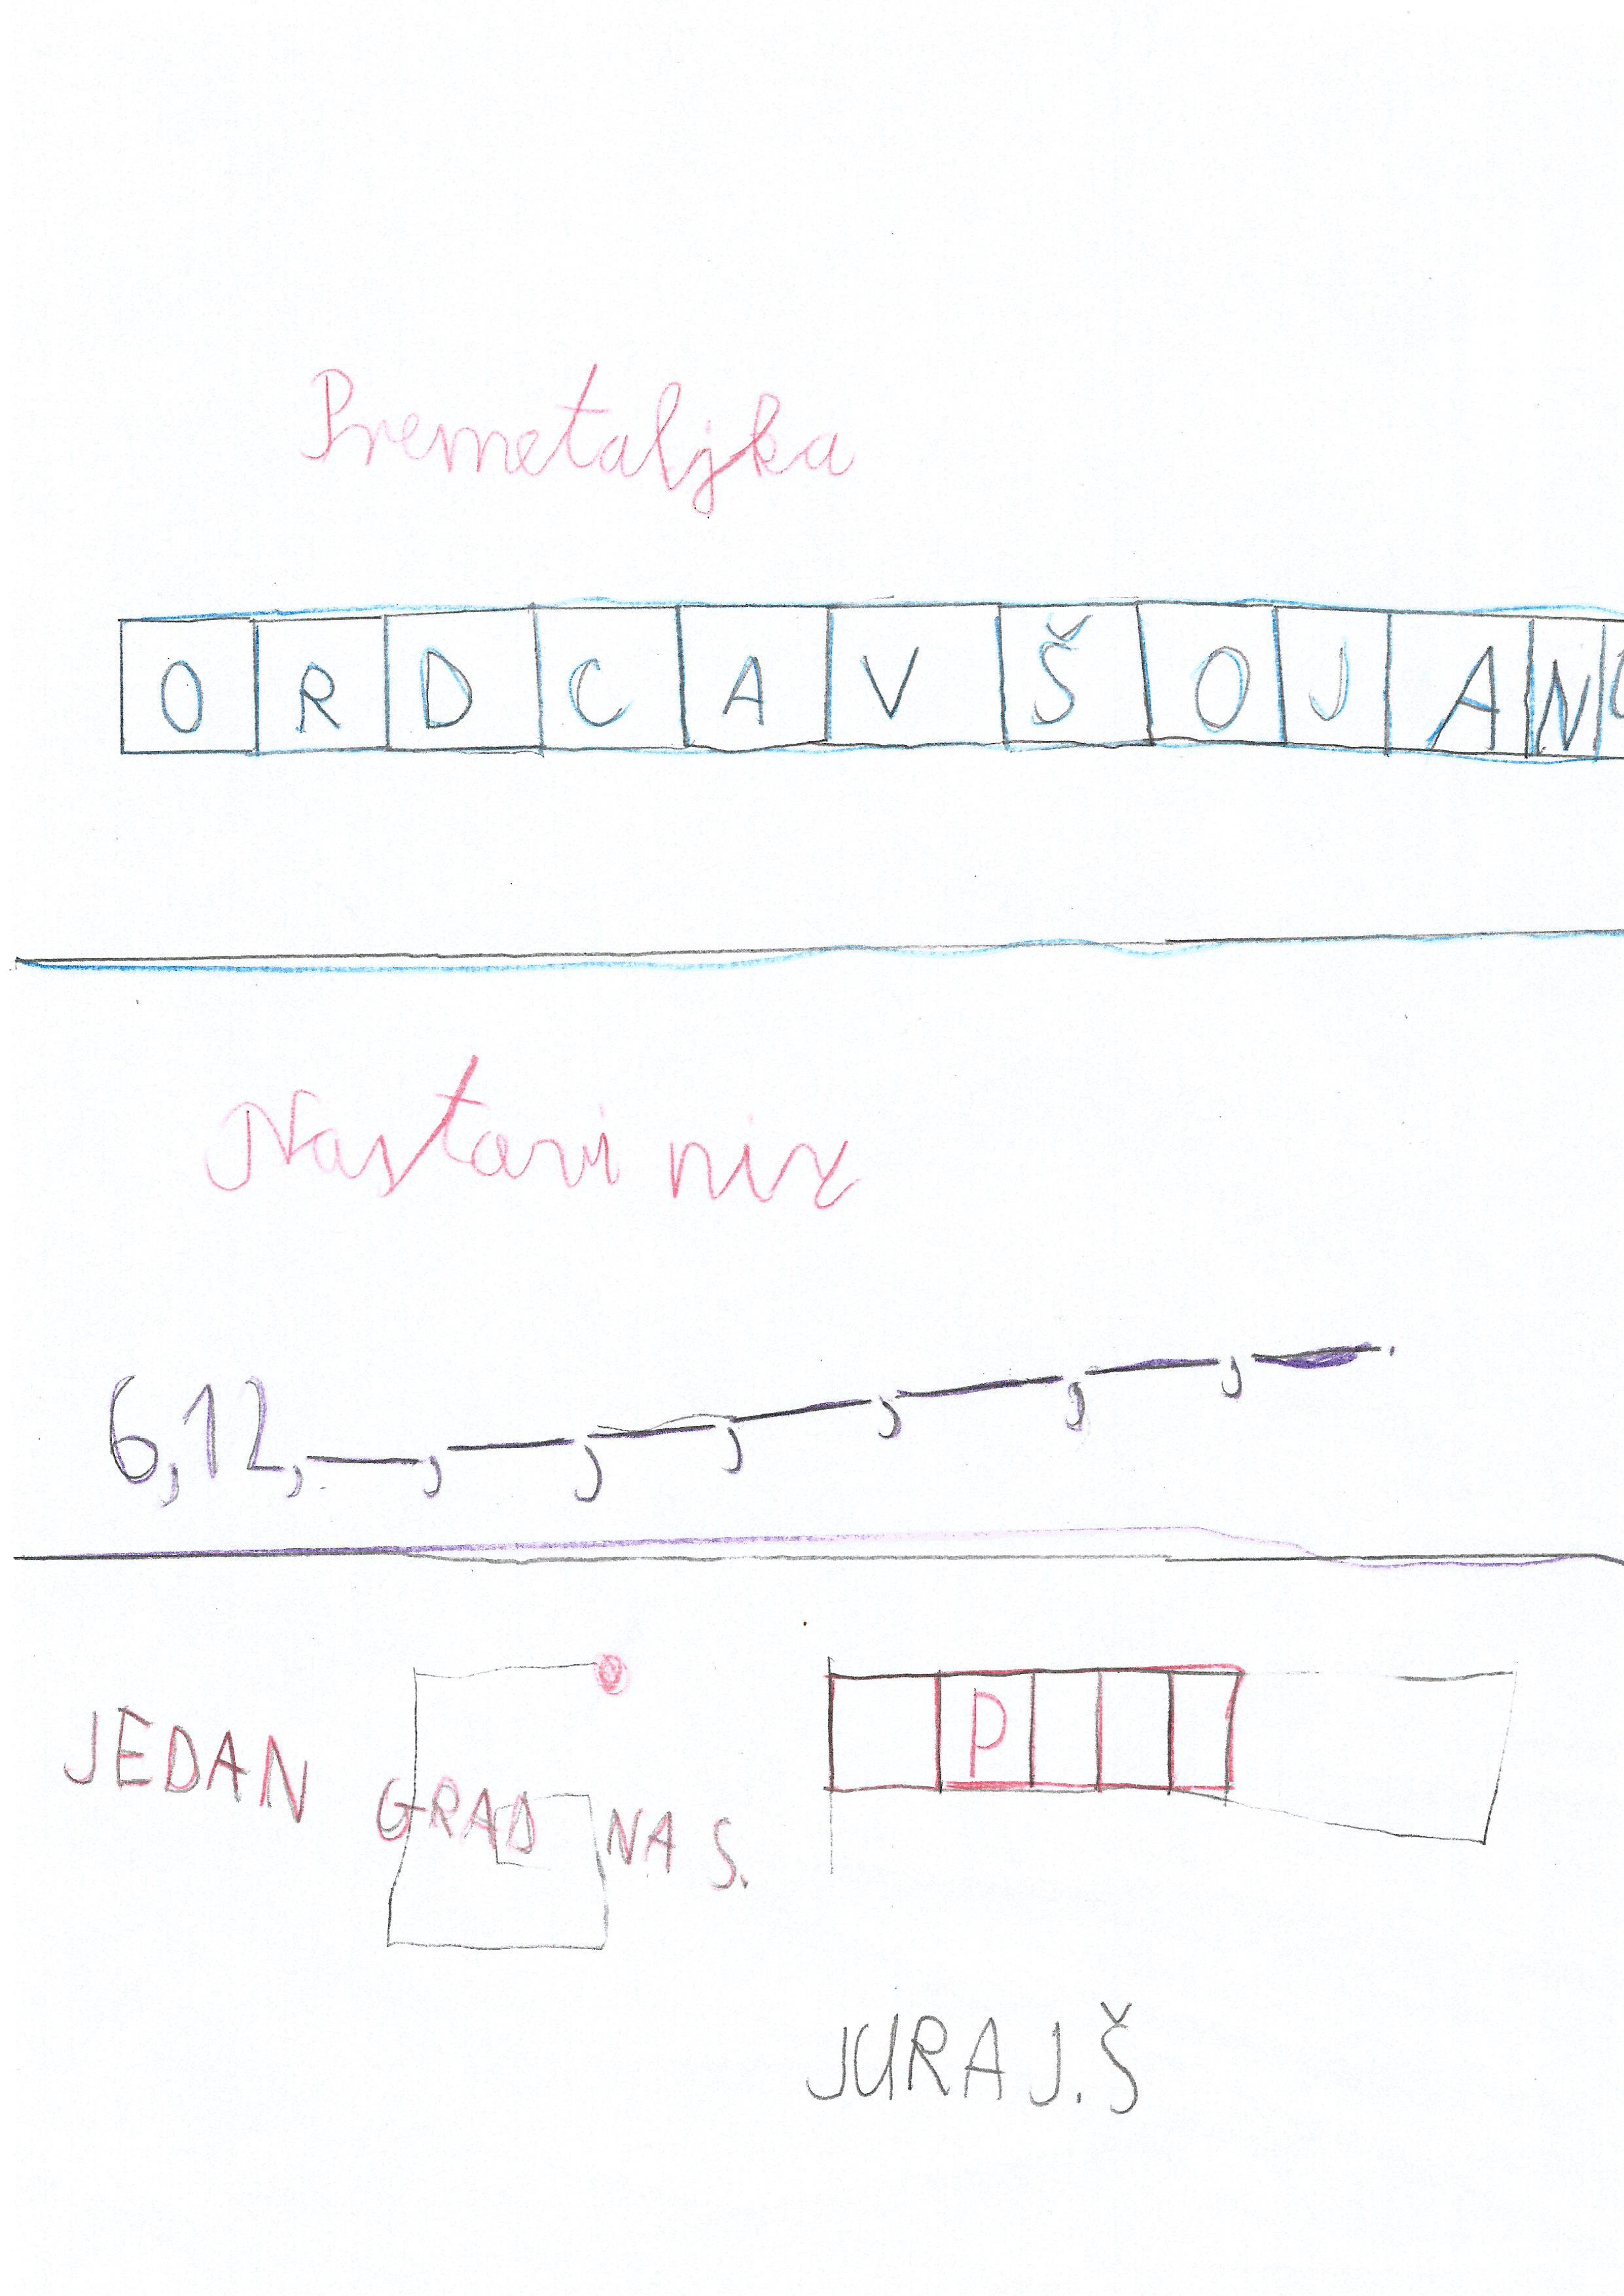 Premetaljka
O R D C A V Š O J A N
Nastavi niz
6,12,__,__,__,__,__,__,__.
JEDAN GRAD NA S.
P
JURAJ.Š